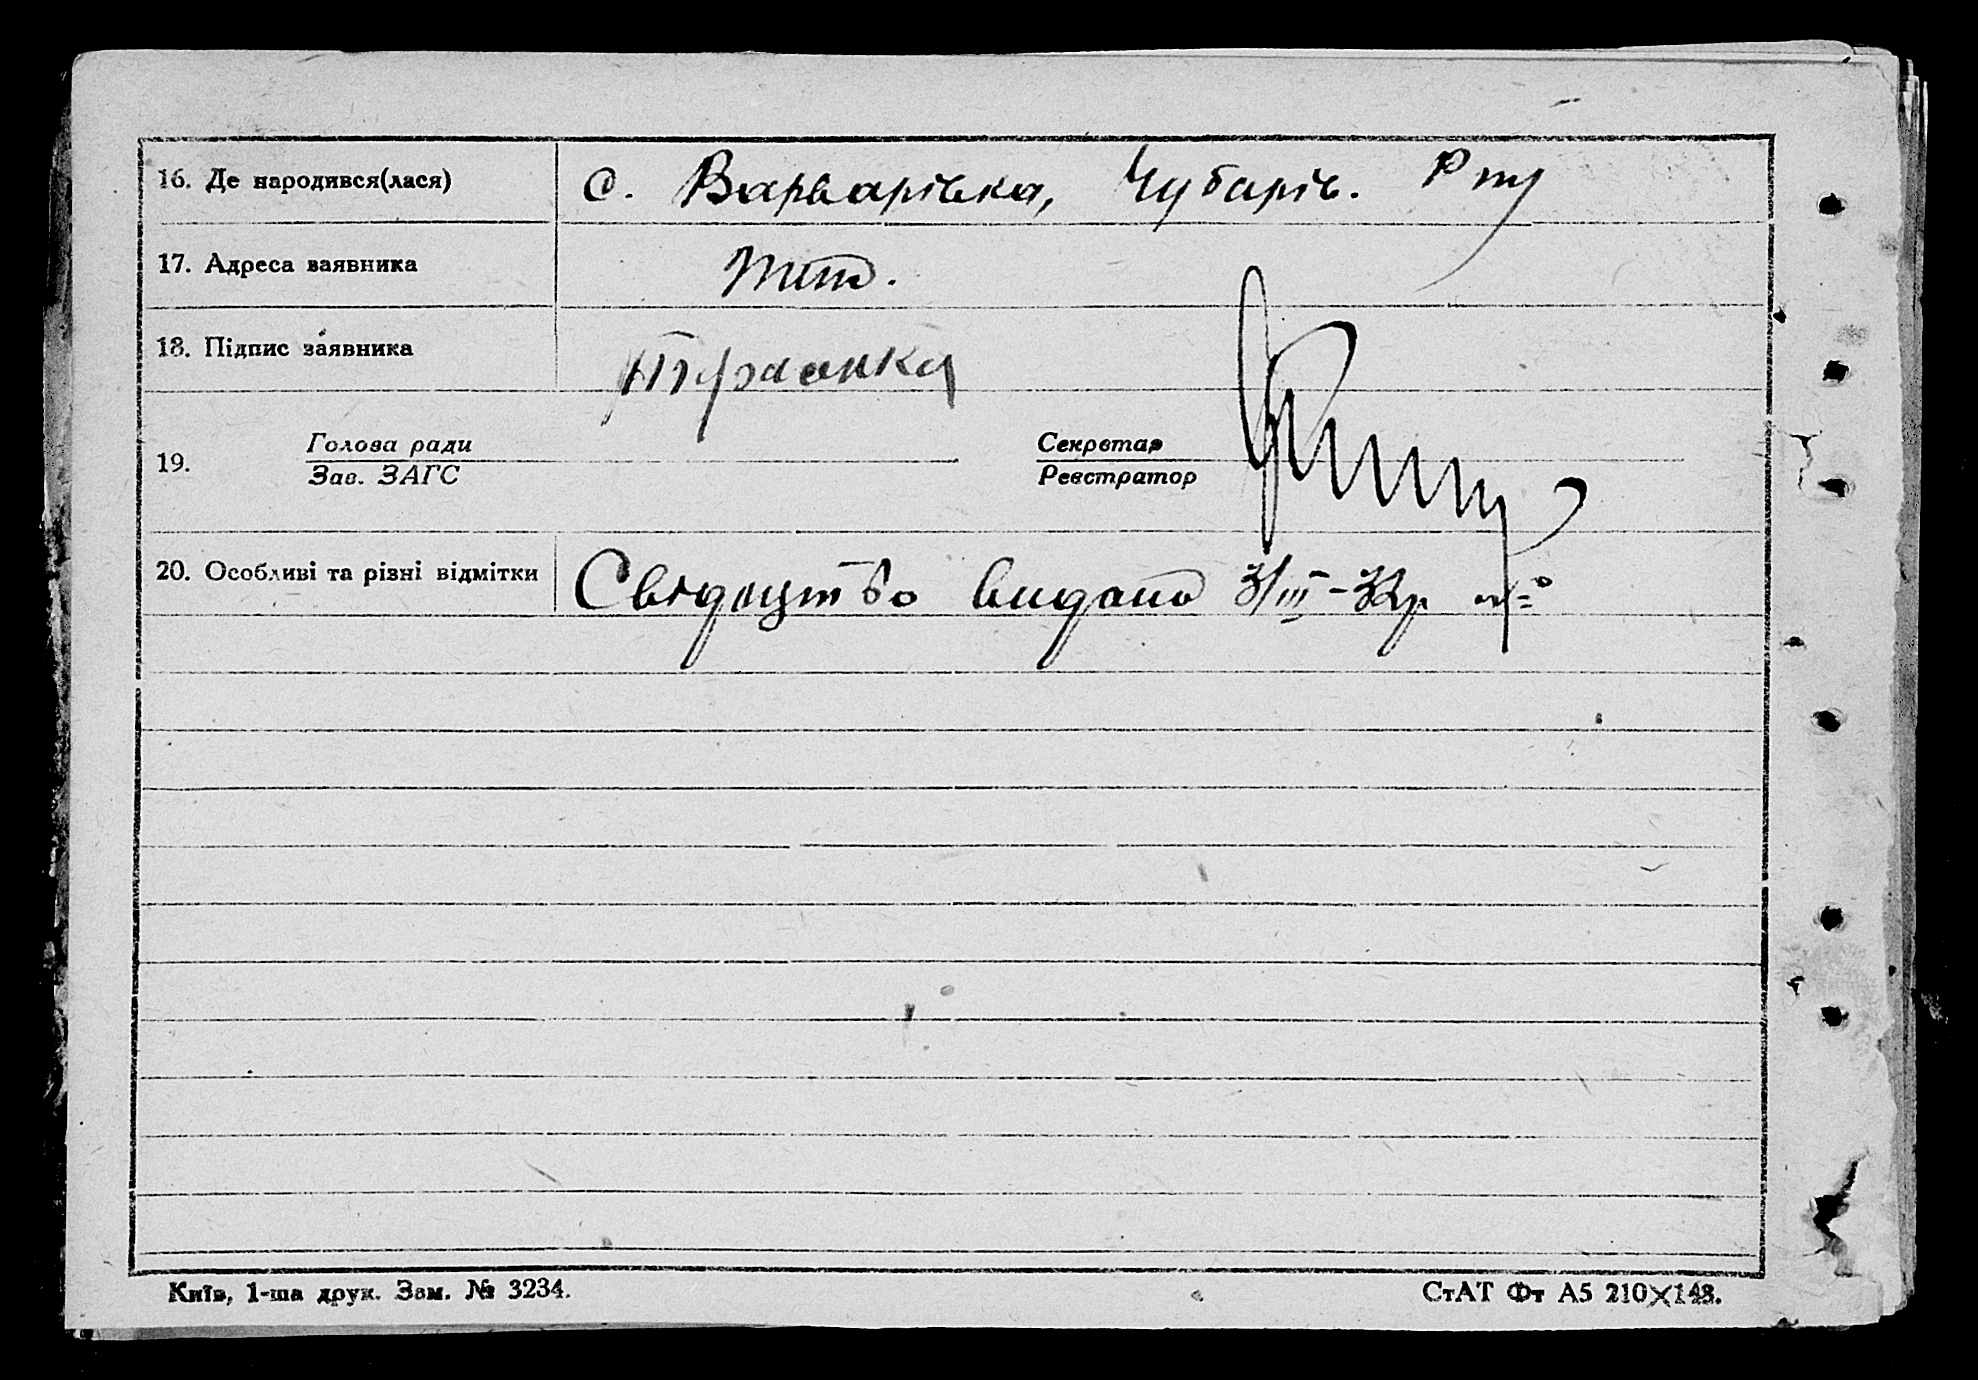 16. Де народився(лася) с. Варварівка, Чубарів. Р-ну
17. Адреса заявника Тит.
18. Підпис заявника
19. Голова ради Секретар
Зав. ЗАГС Реєстратор
20. Особливі та різні відмітки Свідоцтво видано 3/III-32р
Київ, 1-ша друк. Зам. № 3234.
СтАТ Фт А5 210×148.